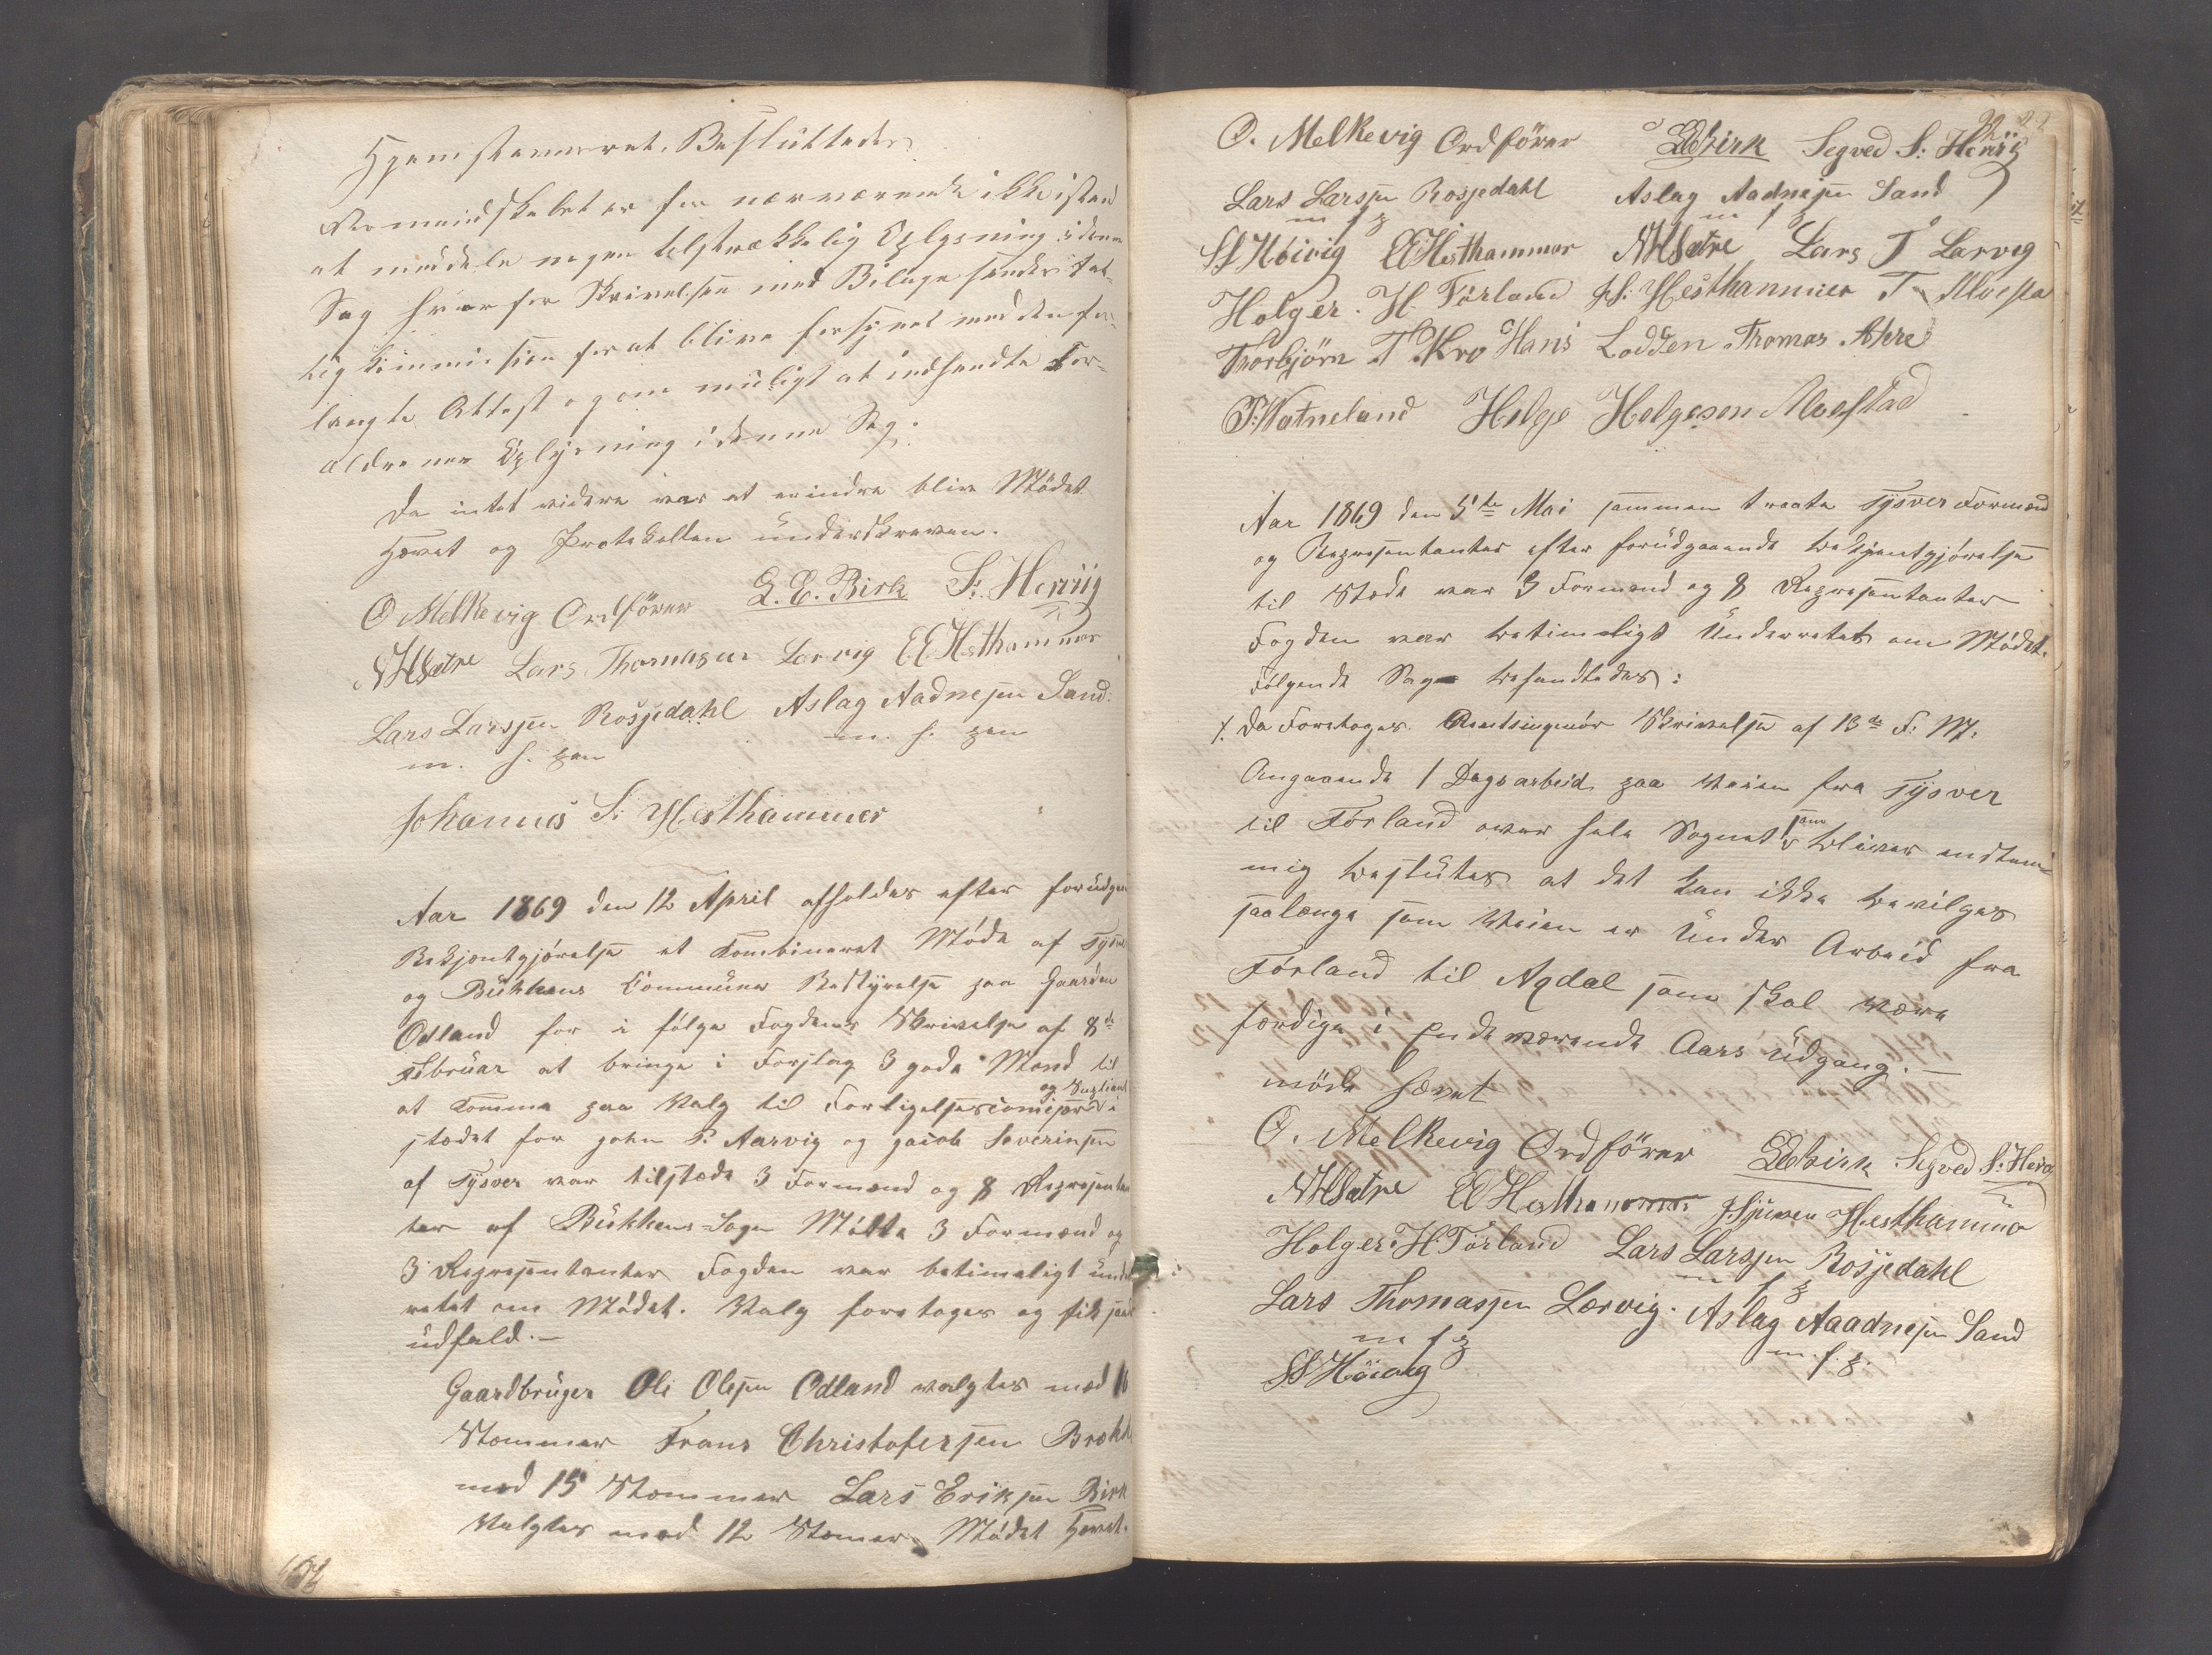 Hjemstavnsret. Besluttedes
Formændskabet er for nærværende ikke istand
at meddele nogen telstrækkelig Oplysning i denne
Sag hvorfor Skrivelsen med Bilage sendes Fat-
tig Kommission for at blive forsynet med den for-
langte Attest og om muligt at indhendte For-
aldrenes Oplysning i denne Sag.
Da intet videre var at erindre blev Mödet
Hævet og Protokollen underskreven.
O Melkevig Ordförer L. E. Birk S: Herviig
NHSætre Lars Thomasen Lervig EEHesthammer
Lars Larssen Rossjedahl Aslag Aadnesen Sand:
m. f. pen m. f. pen
Johannes S: Hesthammer
Aar 1869 den 12 April afholdes efter forudgaa
Bekjentgjörelse et Kombineret Möde af Tysvæ
og Bukkens Commune Bestyrelse paa Gaarden
Odland for i fölge Fogdens Skrivelse af 8de
Februar at bringe i Forslag 3 gode Mænd til
at komme paa Valg til Forligelsescomisær og Supliant i
stædet for John P. Aarvig og Jacob Severinsen
af Tysver var tilstæde 3 Formænd og 8 Represen­tan
ter af Bukkens-Sogn Mötte 3 Formænd og
3 Representanter Fogden var betimeligt under
rettet om Mödet. Valg foretoges og fik saad
udfald.—
Gaardbruger Ole Olesen Odland valgtes med 16
Stemmer Frans Christofersen Brække
med 15 Stemmer Lars Eriksen Birk
Valgtes med 12 Stemer. Mödet Hævet.
O. Melkevig Ordförer LEBirk Segved S: Herviig
Lars Larssen Rossjedahl Aslag Aadnesen Sand
m f p m f p
SSHöivig EEHesthammer NHSætre Lars T Larveg
Holger. H. Förland J.S. Hesthammer T Alvesta
Thorbjörn T Kro Hans Lodden Thomas Akre
P. Vatneland Helge Helgesen Alvestad
Aar 1869 den 5te Mai sammen traate Tysver Formænd
og Representanter efter forudgaaende bekjentgjörelse
til Stæde var 3 Formænd og 8 Representanter
Fogden var betimeligt Underrettet om Mödet.
Fölgende Sag behandledes:
1. Da Foretoges Amtsingeniör Skrivelse af 13de F: M.
Angaaende 1 Dagsarbeid paa Veien fra Tysver
til Förland over hele Sognet som bliver endtem-
mig beslutes at det kan ikke bevilges
saalænge som Veien er Under Arbeid fra
Förland til Aqdal som skal være
færdige i Indeværende Aars Udgang.—
möde hævet
O. Melkevig Ordförer LEBirk Segved S: Hervig
NHSætre EEHesthammer J. Sjursen Hesthammer
Holger. H. Förland Lars Larssen Rossjedahl
m f p
Lars Thomassen Lærvig. Aslag Aaadnesen Sand
m f p m. f. p.
SSHöivig